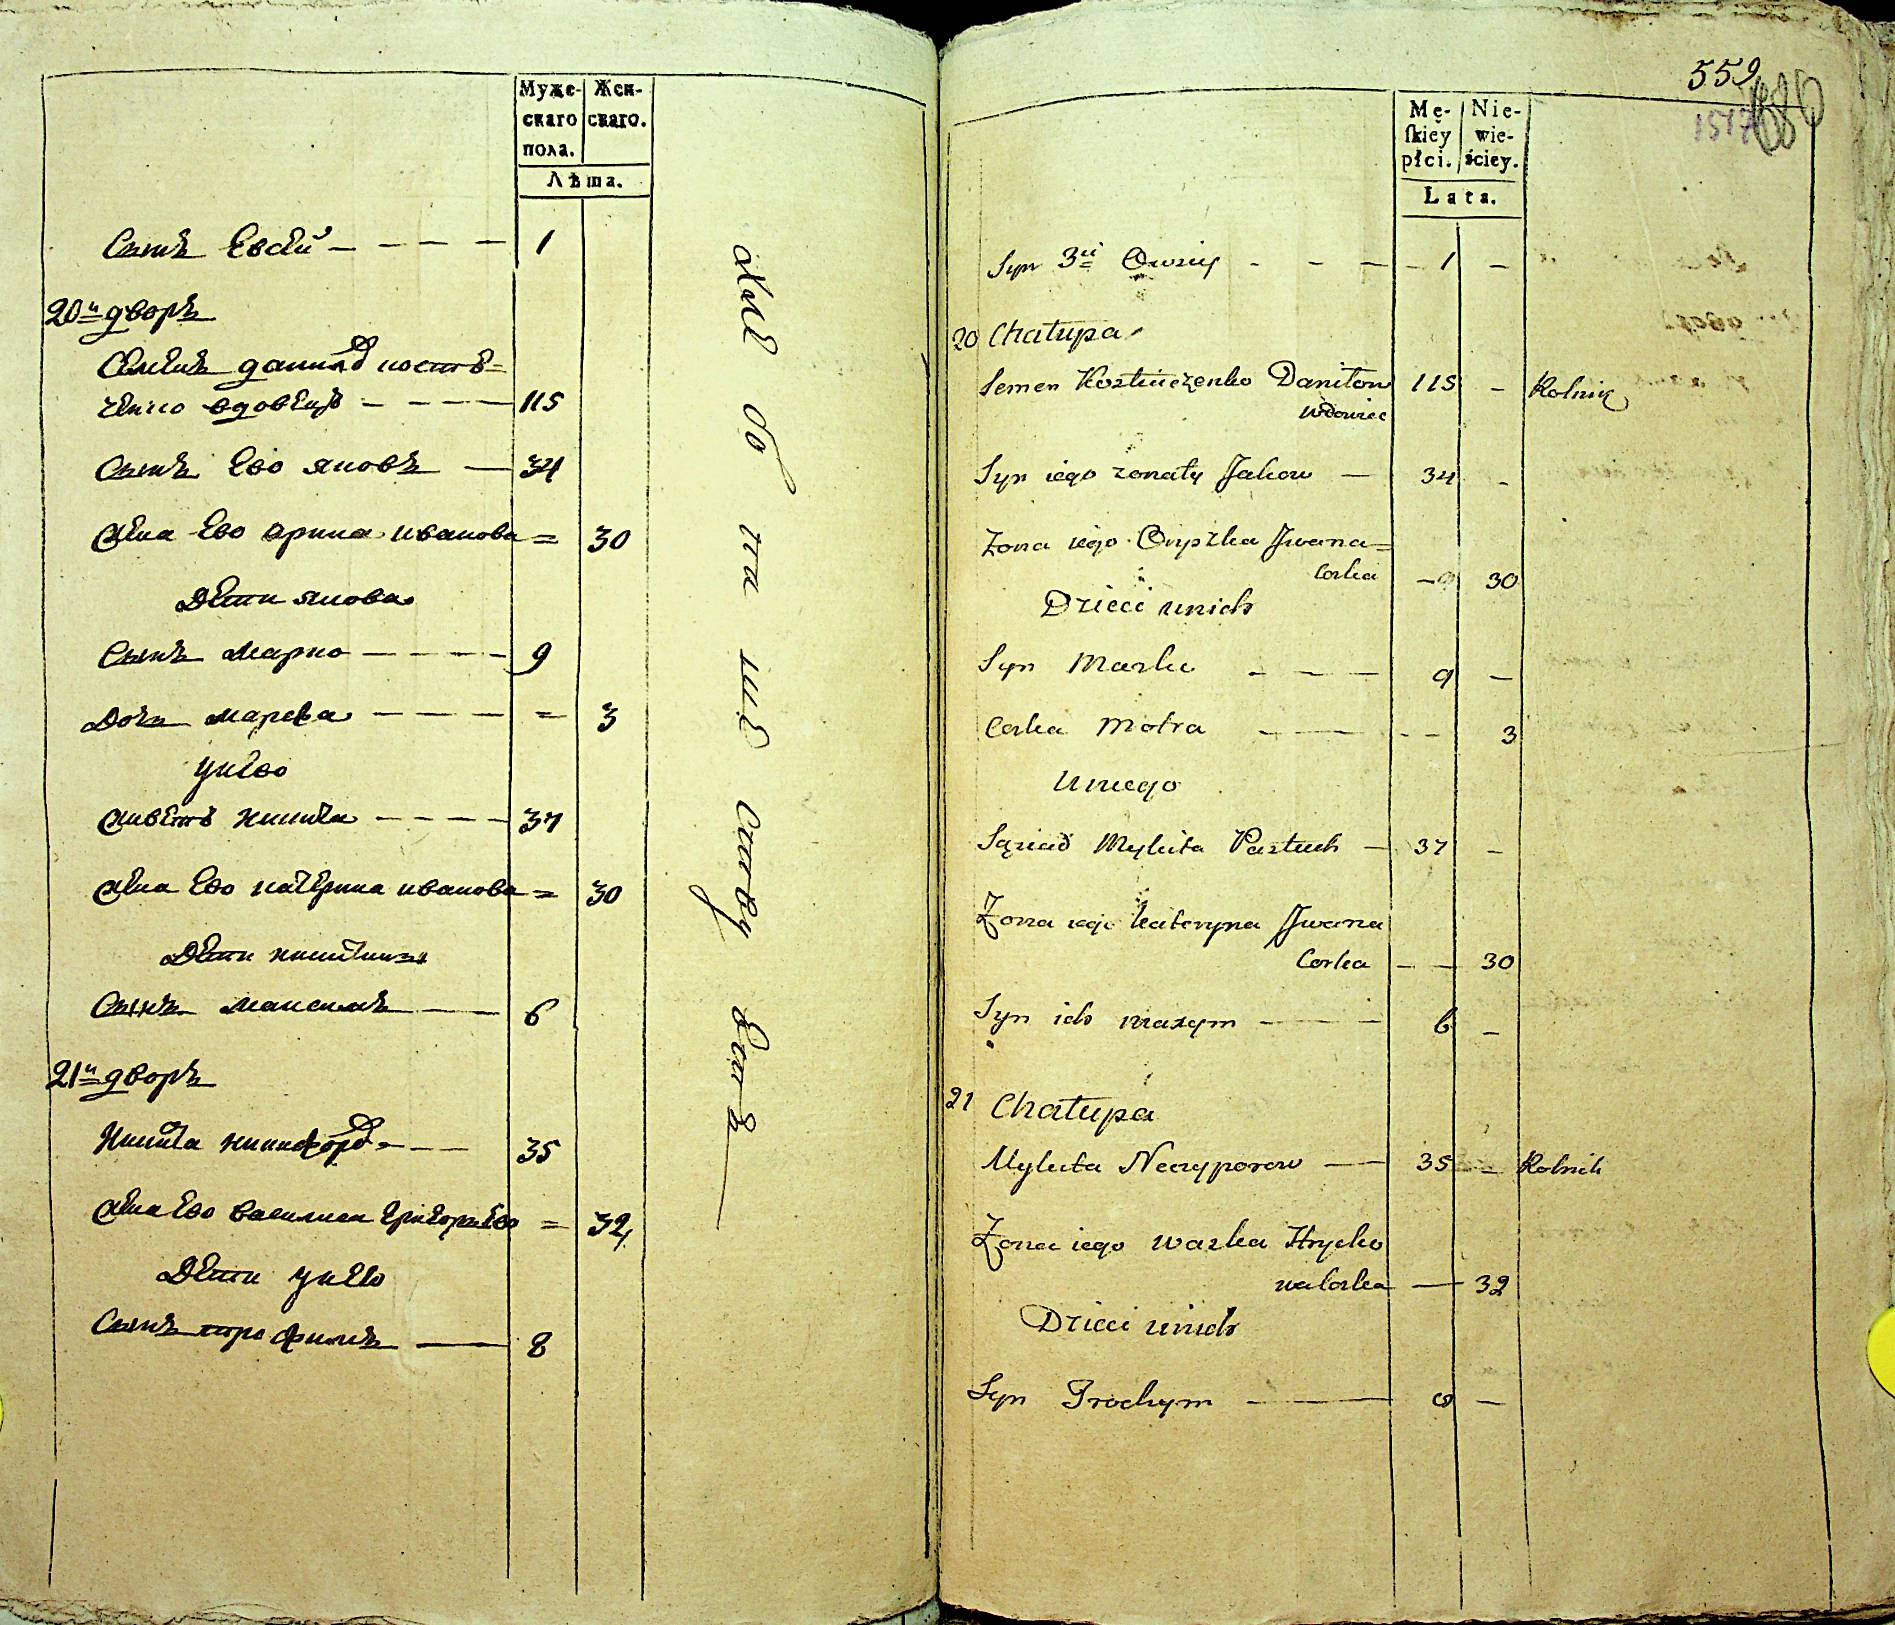 Муже-
скаго
пола.
Жен-
скаго.
Лѣта.
Сынъ Евсей 1
20й дворъ
Семенъ данилов костю=
ченко вдовецъ 115
Сынъ Ево яковъ 34
Жена Ево Арина иванова = 30
Дети якова
Сынъ Марко 9
Дочь Марфа = 3
У него
Живетъ Никита 37
Жена Ево катерина иванова = 30
Дети никитины
Сынъ максимъ 6
21й дворъ
Никита никифоров 35
Жена Ево василиса григорьева = 32
Дети у него
Сынъ трофимъ 8
559
1517
Mę-
skiey
płci.
Nie-
wie-
ściey.
Lata.
Syn 3ci Owsiy 1 –
20 Chałupa
Semen Kostiuczenko Daniłow 115 – Rolnik
wdowiec
Syn iego zonaty Jakow 34 –
Zona iego Oryszka Jwana=
Corka 30
Dzieci unich
Syn Marko 9 –
Corka Motra 3
Uniego
Sąsiad Mykita Pastuch 37 –
Zona iego Kateryna Jwana
Corka 30
Syn ich maxym 6 –
21 Chałupa
Mykita Neczyporow 35 – Rolnik
Zona iego Waska Hrycko
wa Corka 32
Dzieci unich
Syn Trochym 8 –